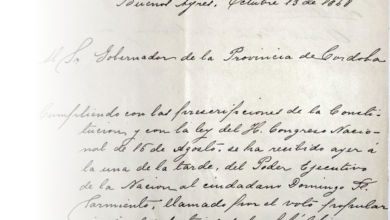 Buenos Ayres, Octubre 13 de 1868
Al Sr. Gobernador de la Provincia de Cordoba
Cumpliendo con las prescripciones de la Consti-
tucion y con la ley del H. Congreso Nacio-
nal de 16 de Agosto, se ha recibido ayer á
la una de la tarde, del Poder Ejecutivo
de la Nacion al ciudadano Domingo F.
Sarmiento, llamado por el voto popular